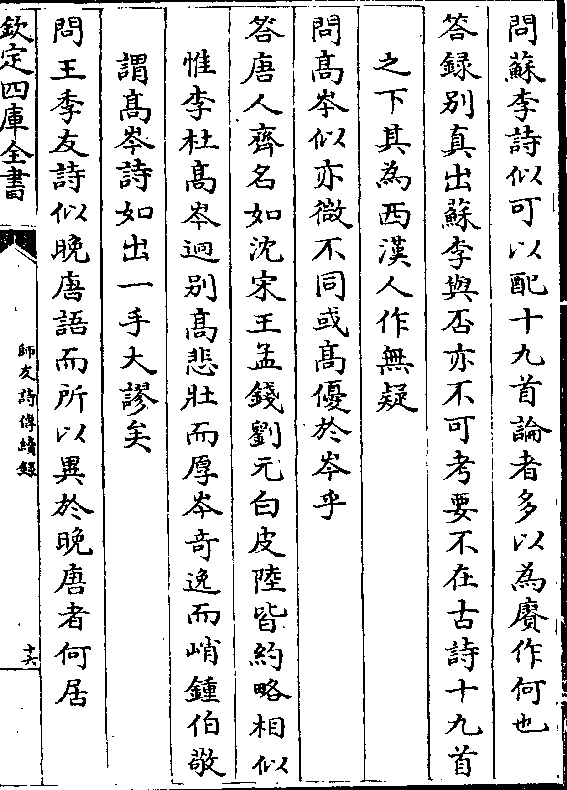 問蘇李詩似可以配十九首論者多以為贗作何也
答録别真出蘇李與否亦不可考要不在古詩十九首
之下其為西漢人作無疑
問髙岑似亦微不同或髙優於岑乎
答唐人齊名如沈宋王孟錢劉元白皮陸皆約略相似
惟李杜髙岑迥别髙悲壯而厚岑奇逸而峭鍾伯敬
謂髙岑詩如出一手大謬矣
問王季友詩似晚唐語而所以異於晚唐者何居
欽定四庫全書
師友詩傳續録
十六